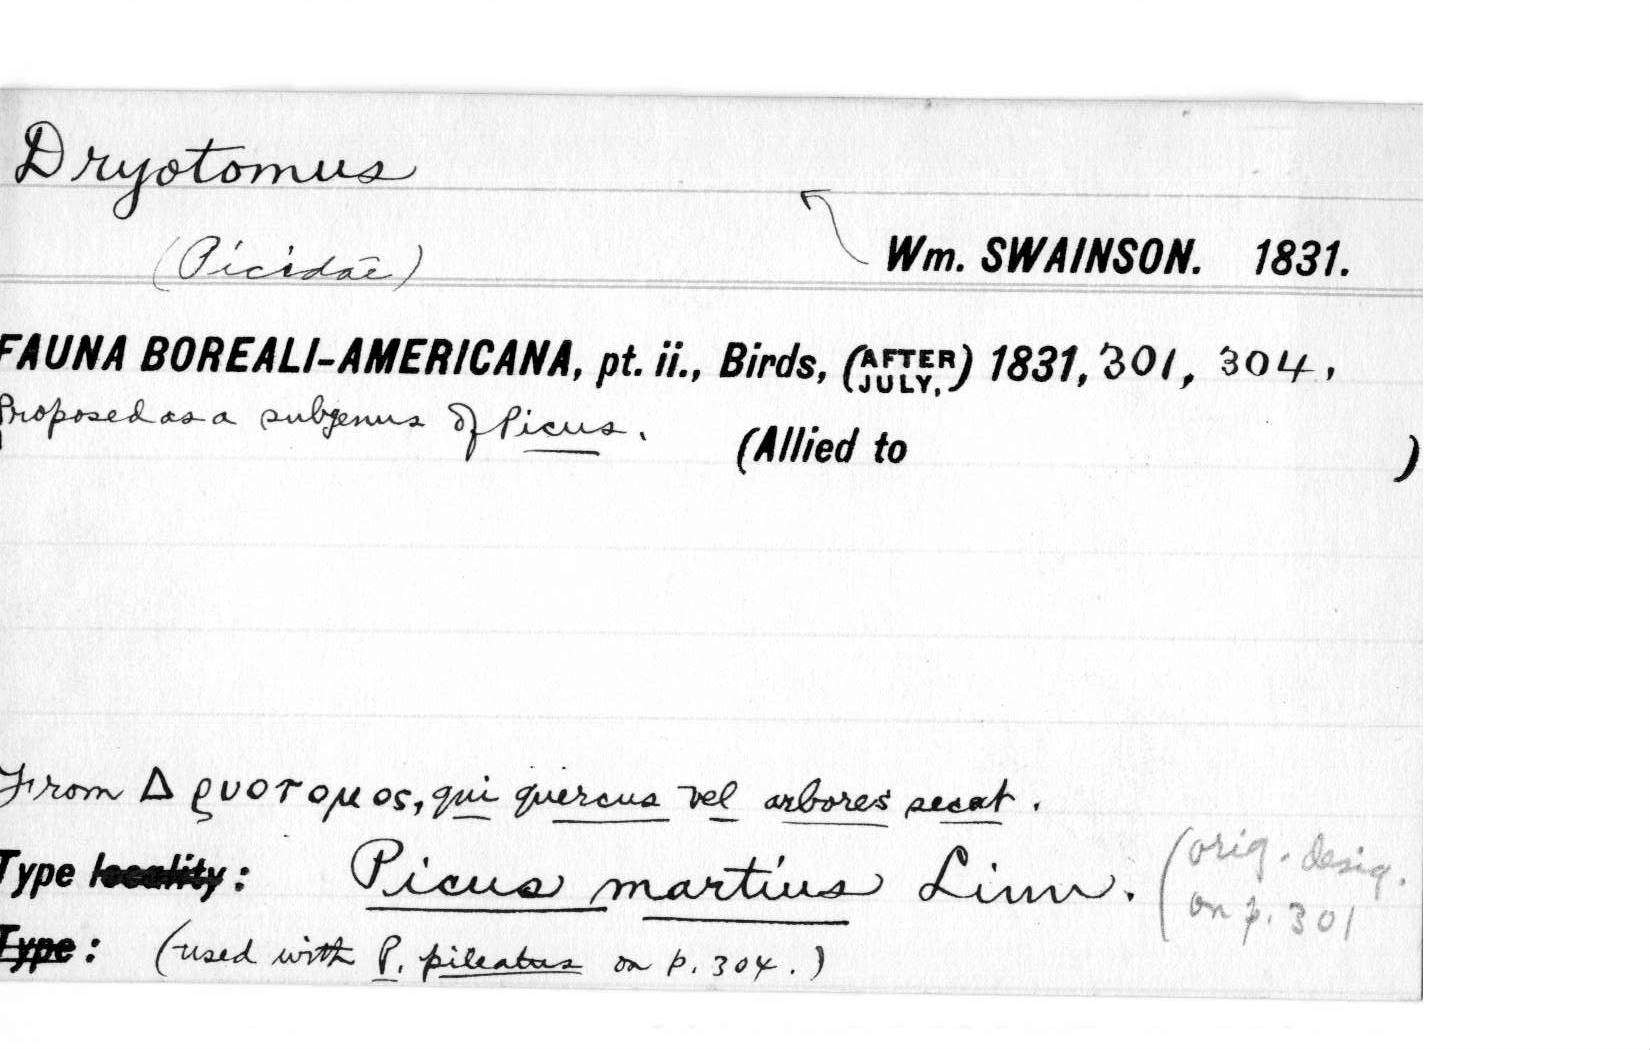 Dryotomus
(Picidae)
Wm. SWAINSON. 1831.
FAUNA BOREALI-AMERICANA, pt. ii., Birds, (AFTER JULY,) 1831, 301, 304,
Proposed as a subgenus of Picus.
(Allied to )
From Δρυοτομος, qui quercus vel arbores secat.
Type locality: Picus martius Linn. (orig. desig.
on p. 301
Type: (used with P. pileatus on p. 304.)